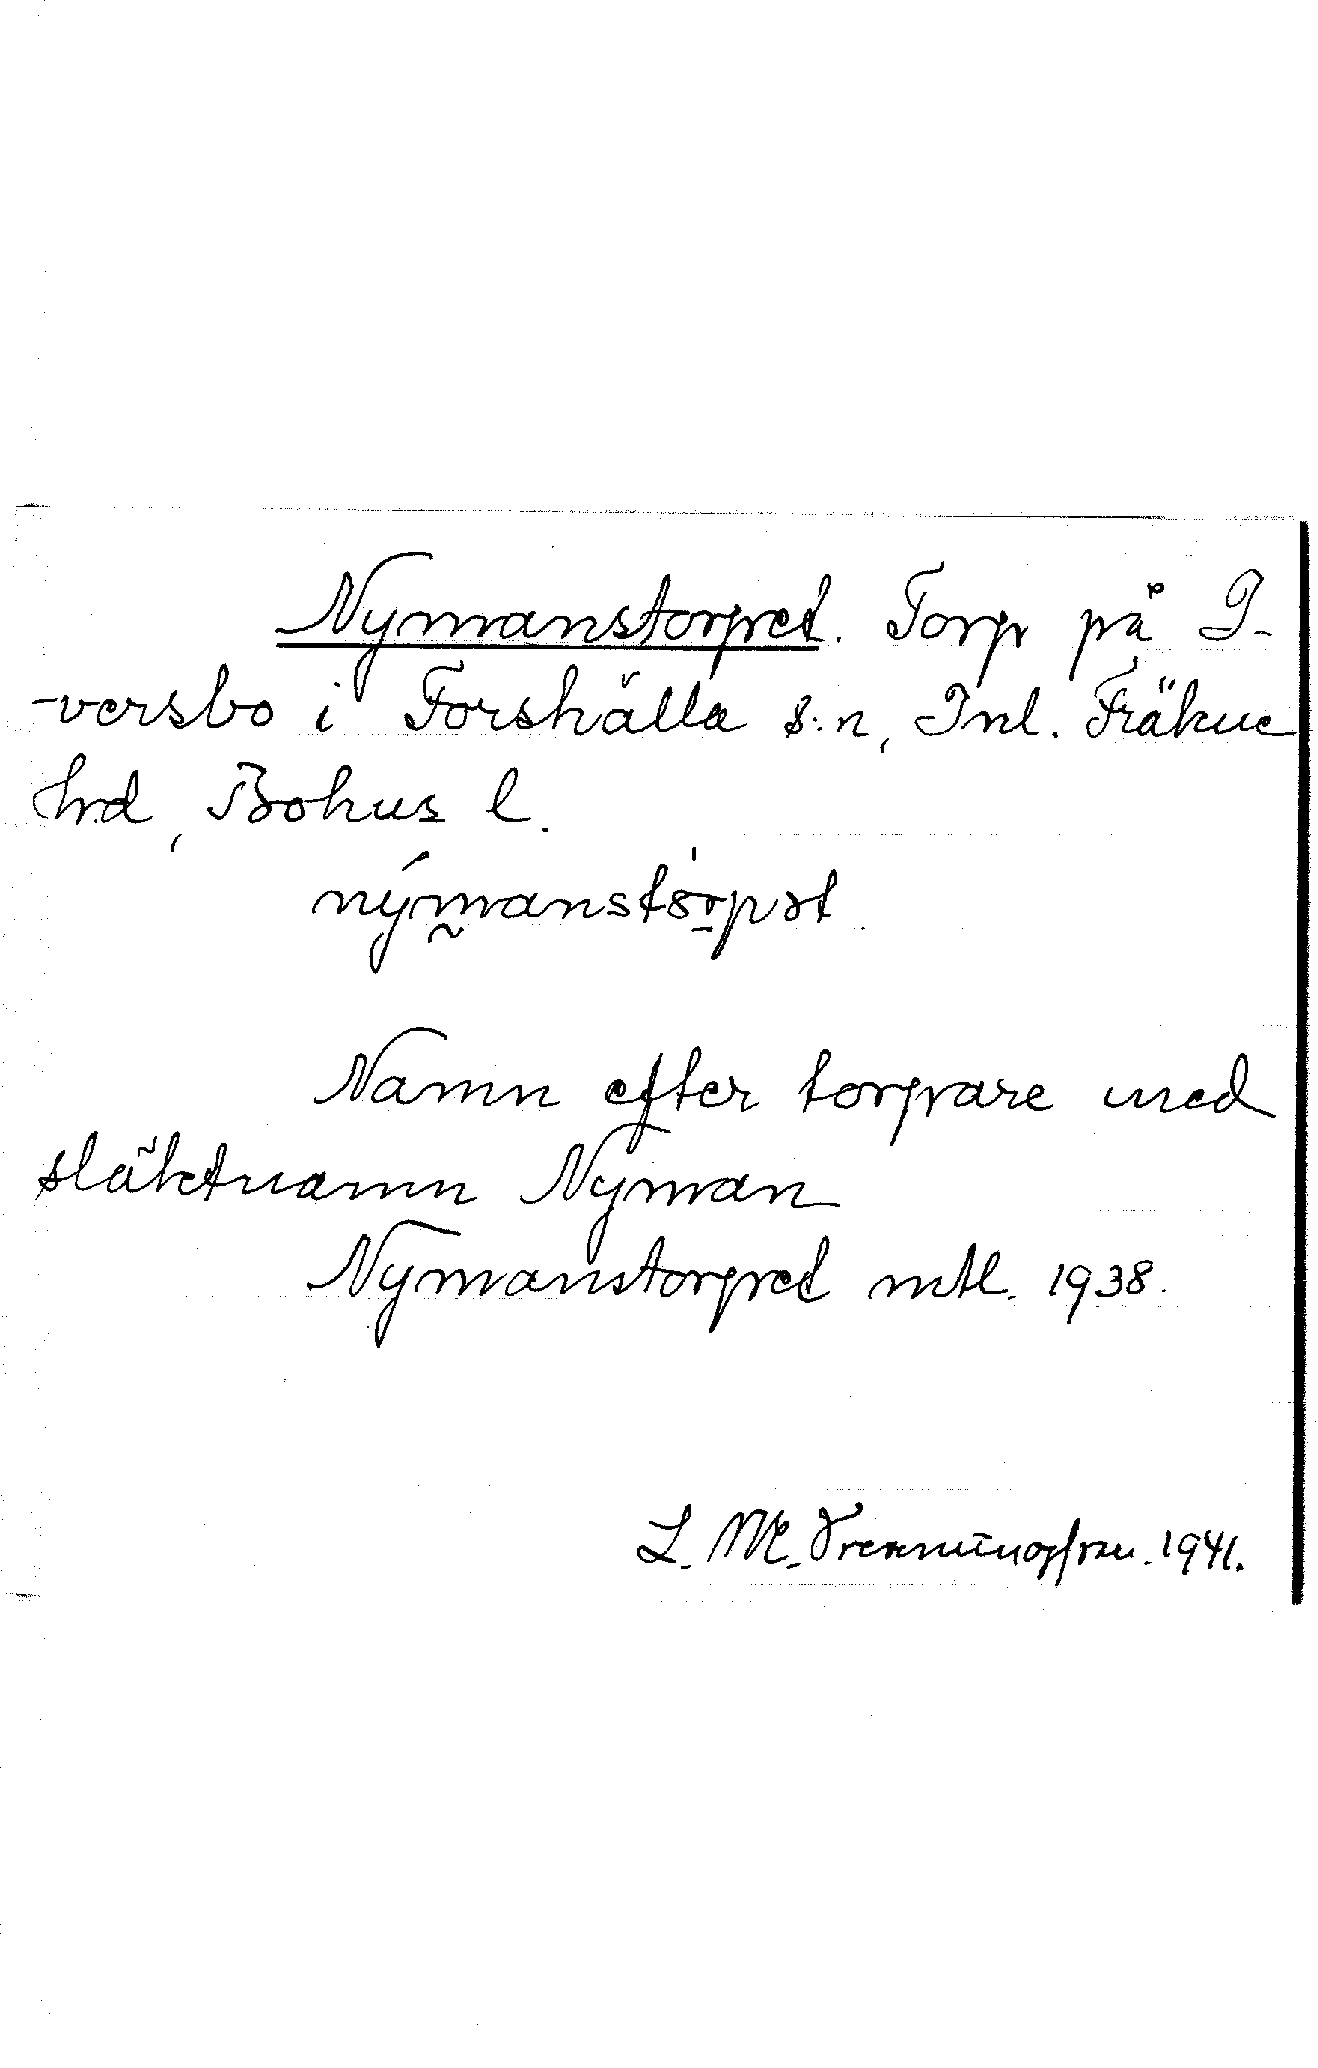 Nymanstorpet. Torp på I-
-versbo i Forshälla s:n, Inl. Fräkne
hrd, Bohus l.
nýmanstörpət
Namn efter torpare med
släktnamn Nyman
Nymanstorpet mtl. 1938.
L. M. 1941.